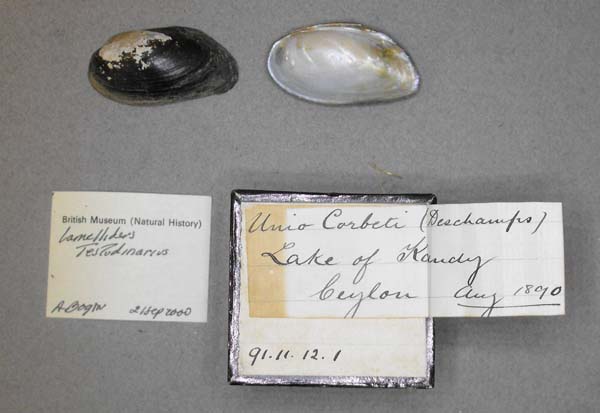 British Museum (Natural History)
Lamellidens
Testudinarius
A. Bogan 21 Sep 2000
Unio Corbeti (Deschamps)
Lake of Kandy
Ceylon Aug 1890
91.11.12.1